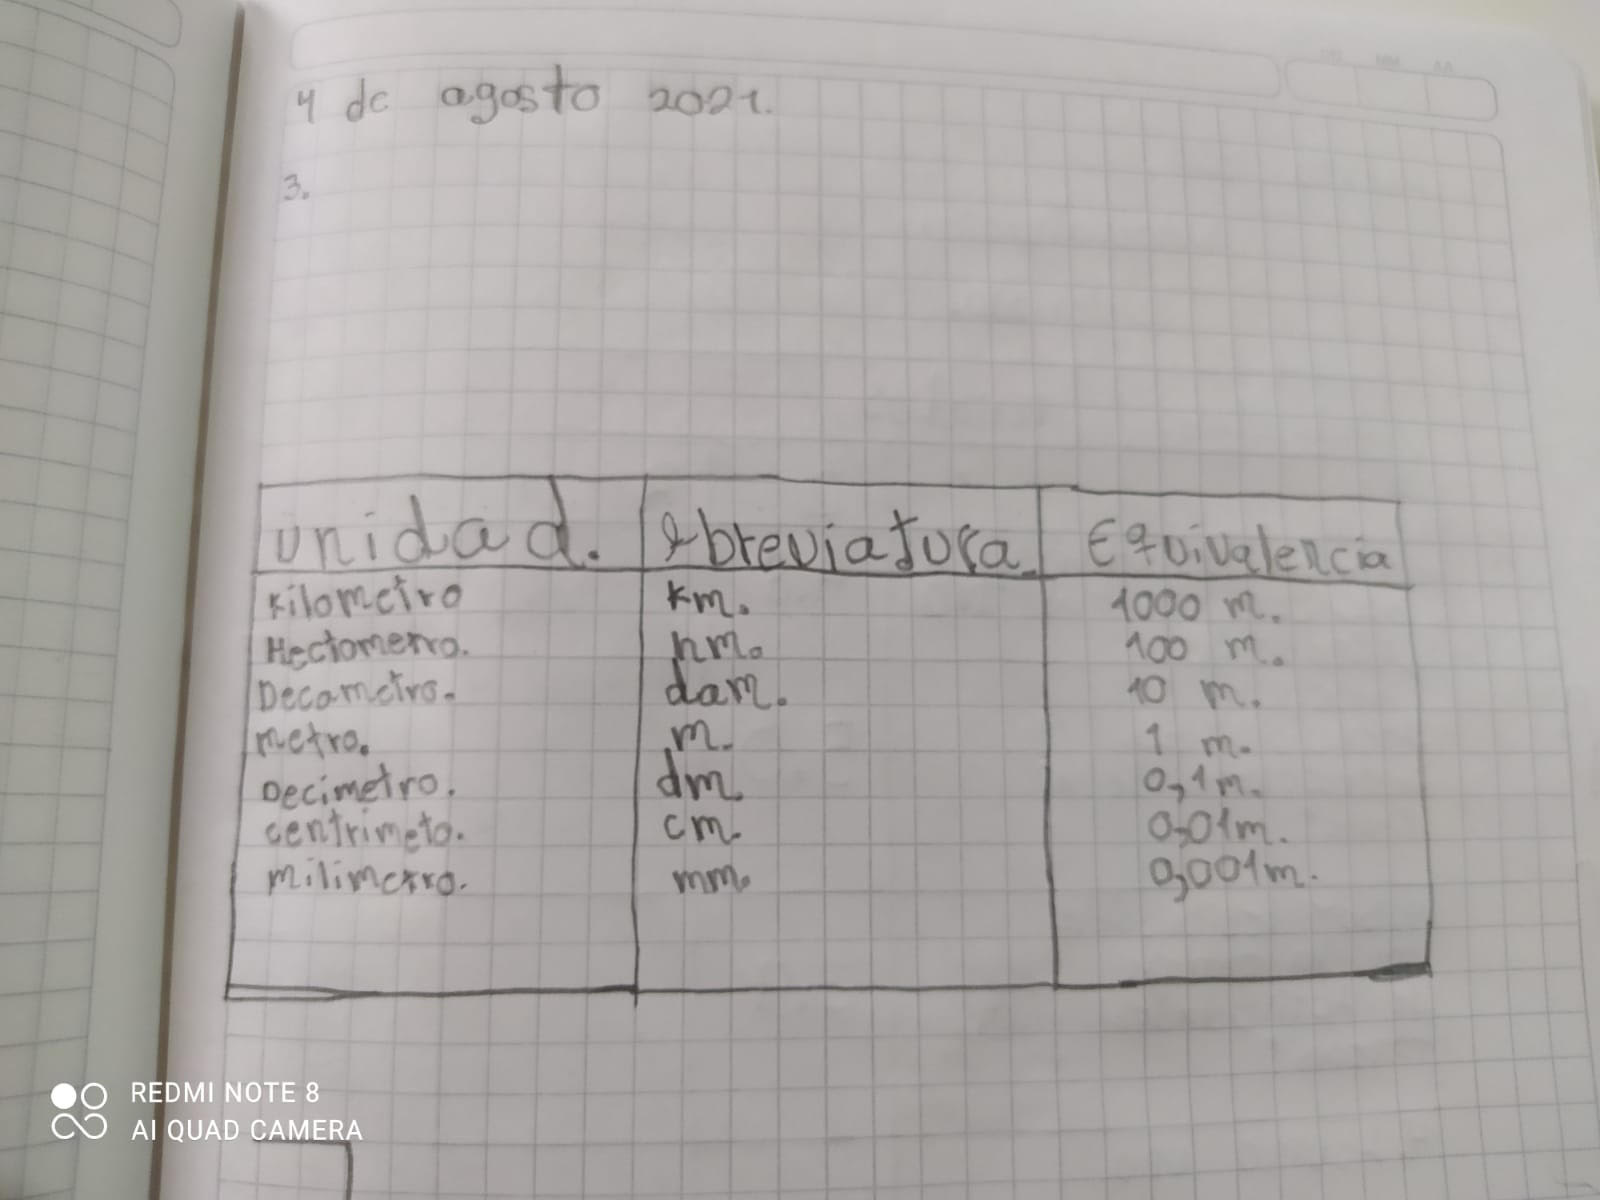 4 de agosto 2021.
3.
Unidad. Abreviatura. Equivalencia
Kilometro km. 1000 m.
Hectometro. hm. 100 m.
Decametro. dam. 10 m.
metro. m. 1 m.
Decimetro. dm. 0,1m.
centrimeto. cm. 0,01m.
milimetro. mm. 0,001m.
REDMI NOTE 8
AI QUAD CAMERA